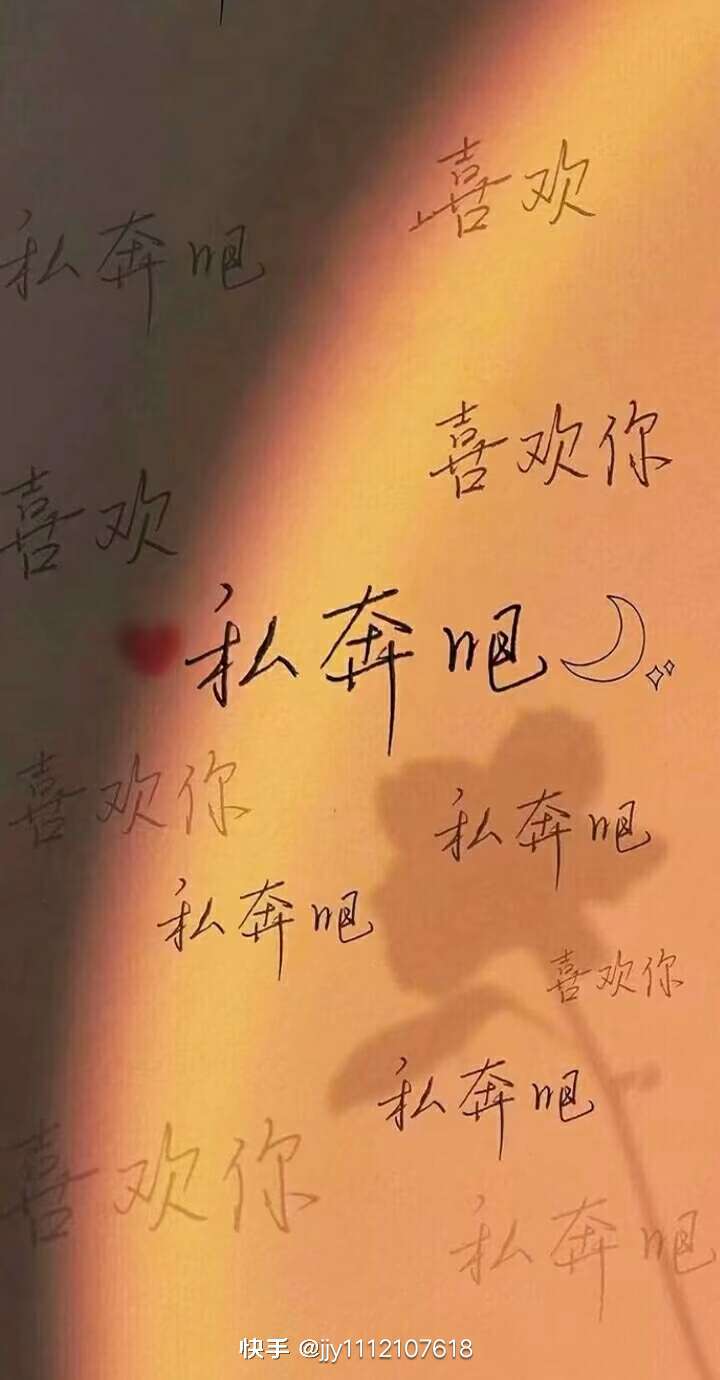 喜欢
私奔吧
喜欢你
喜欢
私奔吧
喜欢你
私奔吧
私奔吧
喜欢你
私奔吧
喜欢你
私奔吧
快手 @jjy1112107618